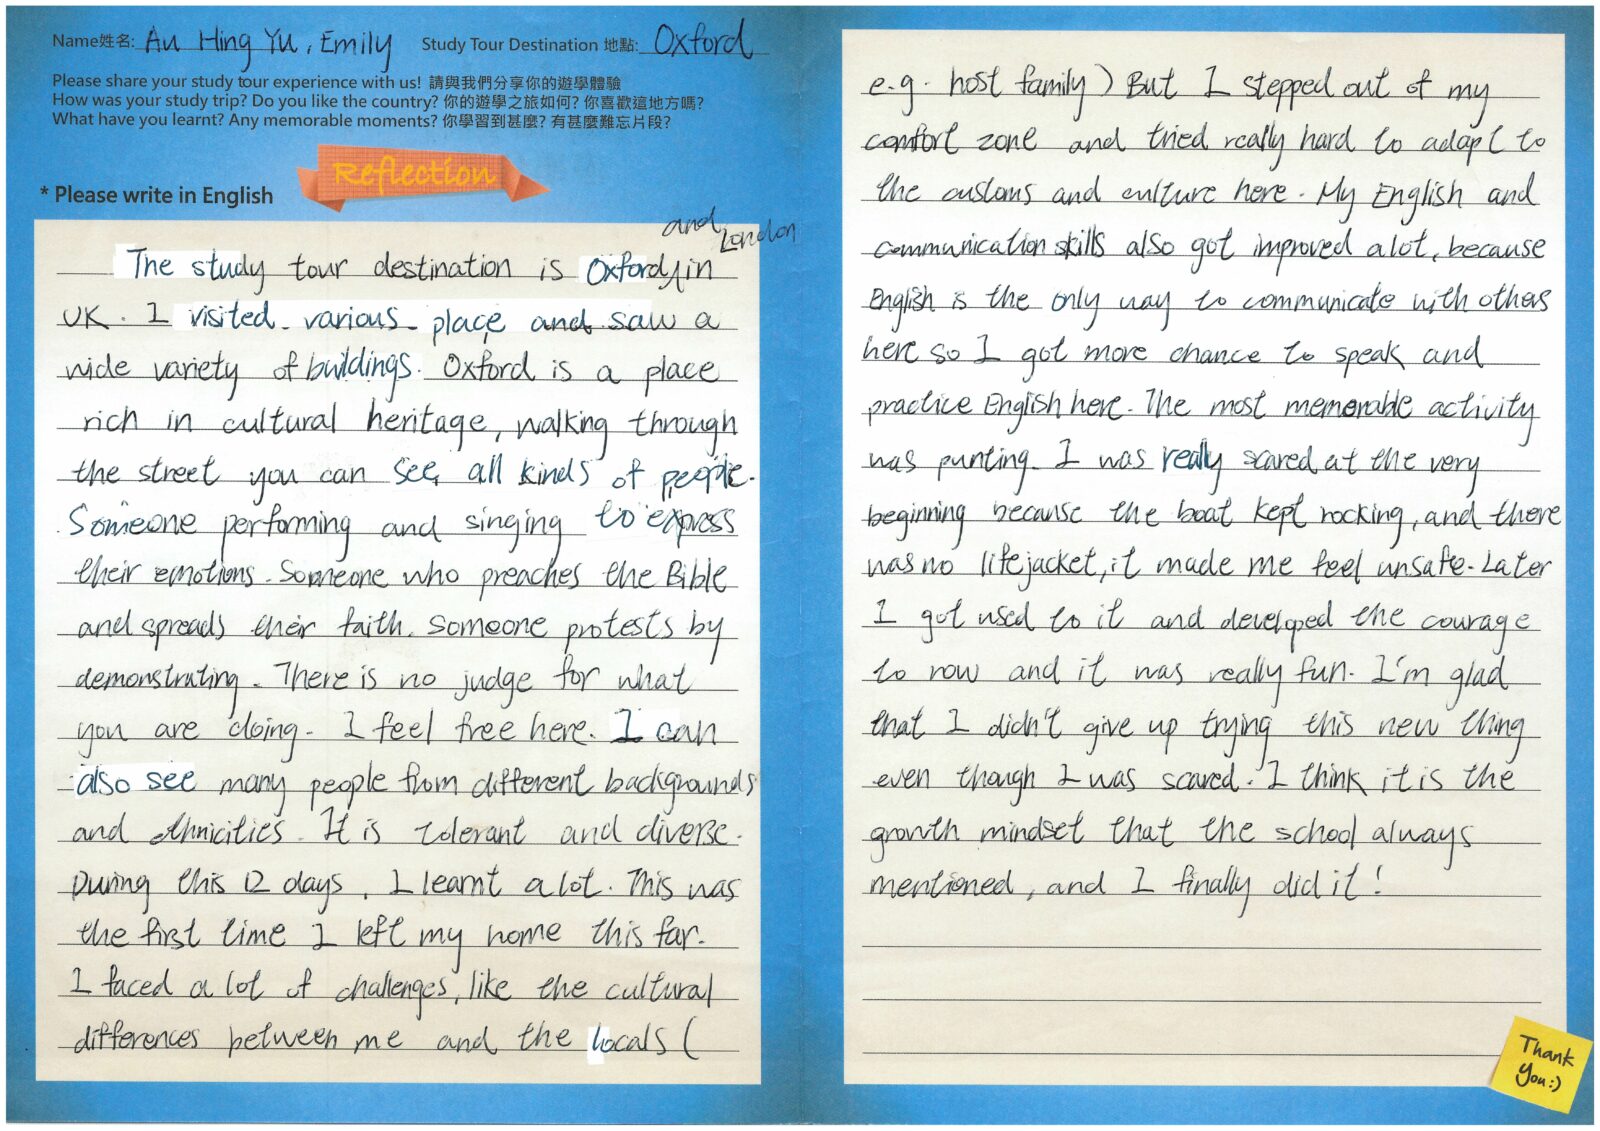 Name姓名: Au Hing Yu, Emily Study Tour Destination 地點: Oxford
Please share your study tour experience with us! 請與我們分享你的遊學體驗
How was your study trip? Do you like the country? 你的遊學之旅如何? 你喜歡這地方嗎?
What have you learnt? Any memorable moments? 你學習到甚麼? 有甚麼難忘片段?
Reflection
* Please write in English
and London
The study tour destination is Oxford, in
UK. I visited various place and saw a
wide variety of buildings. Oxford is a place
rich in cultural heritage, walking through
the street you can see all kinds of people.
Someone performing and singing to express
their emotions. Someone who preaches the Bible
and spreads their faith. Someone protests by
demonstrating. There is no judge for what
you are doing. I feel free here. I can
also see many people from different backgrounds
and ethnicities. It is tolerant and diverse.
During this 12 days, I learnt a lot. This was
the first time I left my home this far.
I faced a lot of challenges, like the cultural
differences between me and the locals (
e.g. host family) But I stepped out of my
comfort zone and tried really hard to adapt to
the customs and culture here. My English and
communication skills also got improved a lot, because
English is the only way to communicate with others
here so I got more chance to speak and
practice English here. The most memorable activity
was punting. I was really scared at the very
beginning because the boat kept rocking, and there
was no lifejacket, it made me feel unsafe. Later
I got used to it and developed the courage
to row and it was really fun. I'm glad
that I didn't give up trying this new thing
even though I was scared. I think it is the
growth mindset that the school always
mentioned, and I finally did it!
Thank
You:)